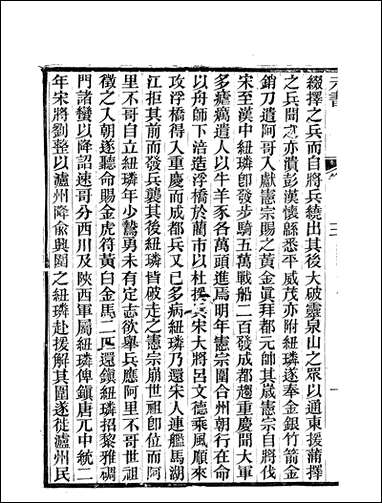 元書
綴擇之兵而自將兵繞出其後大破靈泉山之眾以通東援蒲擇
之兵聞之亦潰彭漢懷縣悉平威茂亦附紐璘遂奉金銀竹箭金
銷刀遣阿哥入獻憲宗賜之黃金眞拜都元帥其歲憲宗自將伐
宋至漢中紐璘卽發步騎五萬戰船二百發成都趨重慶聞大軍
多瘧癘遣人以牛羊豕各萬頭進焉明年憲宗圍合州朝行在命
以舟師下涪造浮橋於藺市以杜援兵宋大將呂文德乘風順來
攻浮橋得入重慶而成都兵又已多病紐璘乃還宋人連艦馬湖
江拒其前而發兵襲其後紐璘皆破走之憲宗崩世祖卽位而阿
里不哥自立紐璘年少驁勇未有定志欲舉兵應阿里不哥世祖
徵之入朝遂聽命賜金虎符黃白金馬二匹還鎭紐璘招黎雅碉
門諸蠻以降詔速哥分西川及陝西軍屬紐璘俾鎭唐兀中統二
年宋將劉整以瀘州降兪興圍之紐璘赴援解其圍遂徙瀘州民